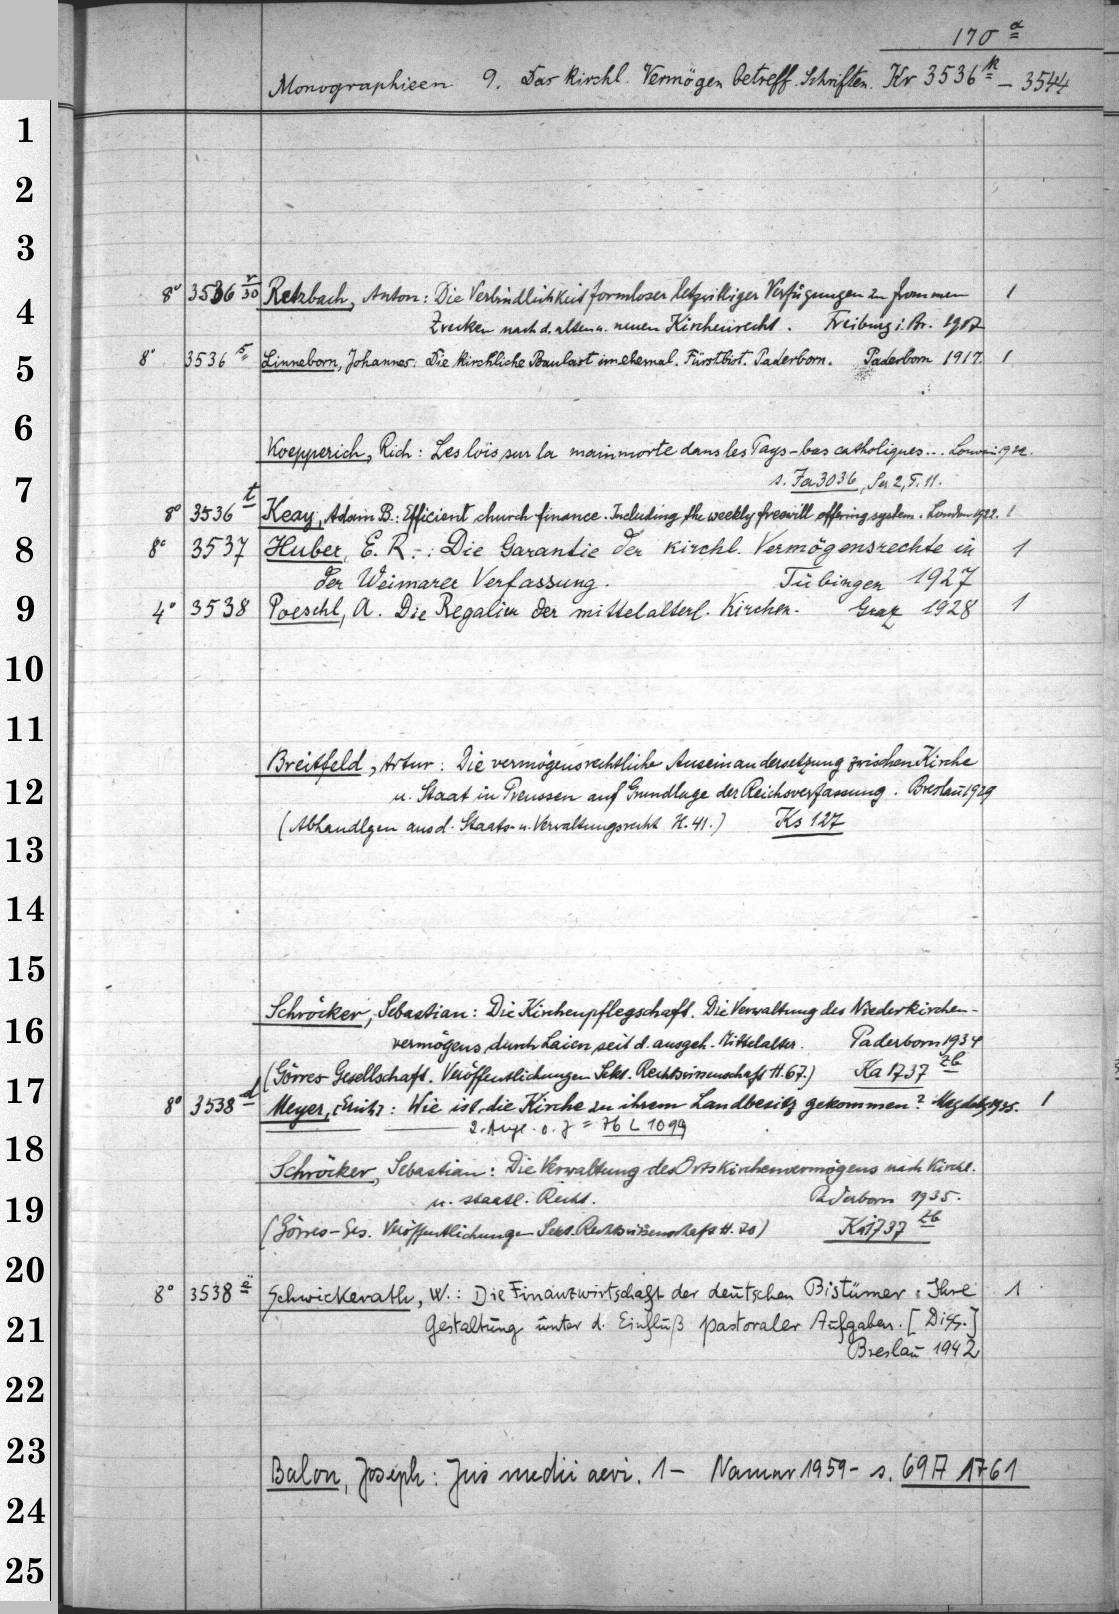 170 a
Monographieen 9. Das kirchl. Vermögen betreff. Schriften. Kr 3536 k – 3544
1
2
3
8° 3536 r/30 Retzbach, Anton: Die Verbindlichkeit formloser letzwilliger Verfügungen zu frommen 1
4
Zwecken nach d. alten u. neuen Kirchenrecht. Freiburg i. Br. 1917
8° 3536 s Linneborn, Johannes: Die kirchliche Baulast im ehemal. Fürstbist. Paderborn. Paderborn 1917. 1
5
6
Koepperich, Rich: Les lois sur la mainmorte dans les Pays-bas catholiques... Louvain 1922.
s. Fa 3036, Ser 2, T. 11.
7
8° 3536 t Keay, Adam B.: Efficient church finance. Including the weekly freewill offering system. London 1922. 1
8
8° 3537 Huber, E. R.: Die Garantie der kirchl. Vermögensrechte in 1
der Weimarer Verfassung. Tübingen 1927
9
4° 3538 Poeschl, A. Die Regalien der mittelalterl. Kirchen. Graz 1928 1
10
11
Breitfeld, Artur: Die vermögensrechtliche Auseinandersetzung zwischen Kirche
12
u. Staat in Preussen auf Grundlage der Reichsverfassung. Breslau 1929
(Abhandlgen aus d. Staats- u. Verwaltungsrecht H. 41.) Ks 127
13
14
15
Schröcker, Sebastian: Die Kirchenpflegschaft. Die Verwaltung des Niederkirchen-
16
vermögens durch Laien seit d. ausgeh. Mittelalter. Paderborn 1934
(Görres Gesellschaft. Veröffentlichungen Sekt. Rechtswissenschaft H. 67.) Ka 1737 zb
17
8° 3538 d Meyer, Erich: Wie ist die Kirche zu ihrem Landbesitz gekommen? Magdebg 1935. 1
2. Aufl. o. J = 76 L 1099
18
Schröcker, Sebastian: Die Verwaltung des Ortskirchenvermögens nach kirchl.
u. staatl. Recht. Paderborn 1935.
19
(Görres-Ges. Veröffentlichungen Sekt. Rechtswissenschaft H. 70) Ka 1737 zb
20
8° 3538 e Schwickerath, W.: Die Finanzwirtschaft der deutschen Bistümer: Ihre 1
21
Gestaltung unter d. Einfluß pastoraler Aufgaben. [Diss.]
Breslau 1942
22
23
Balon, Joseph: Jus medii aevi. 1– Namur 1959– s. 69 A 1761
24
25